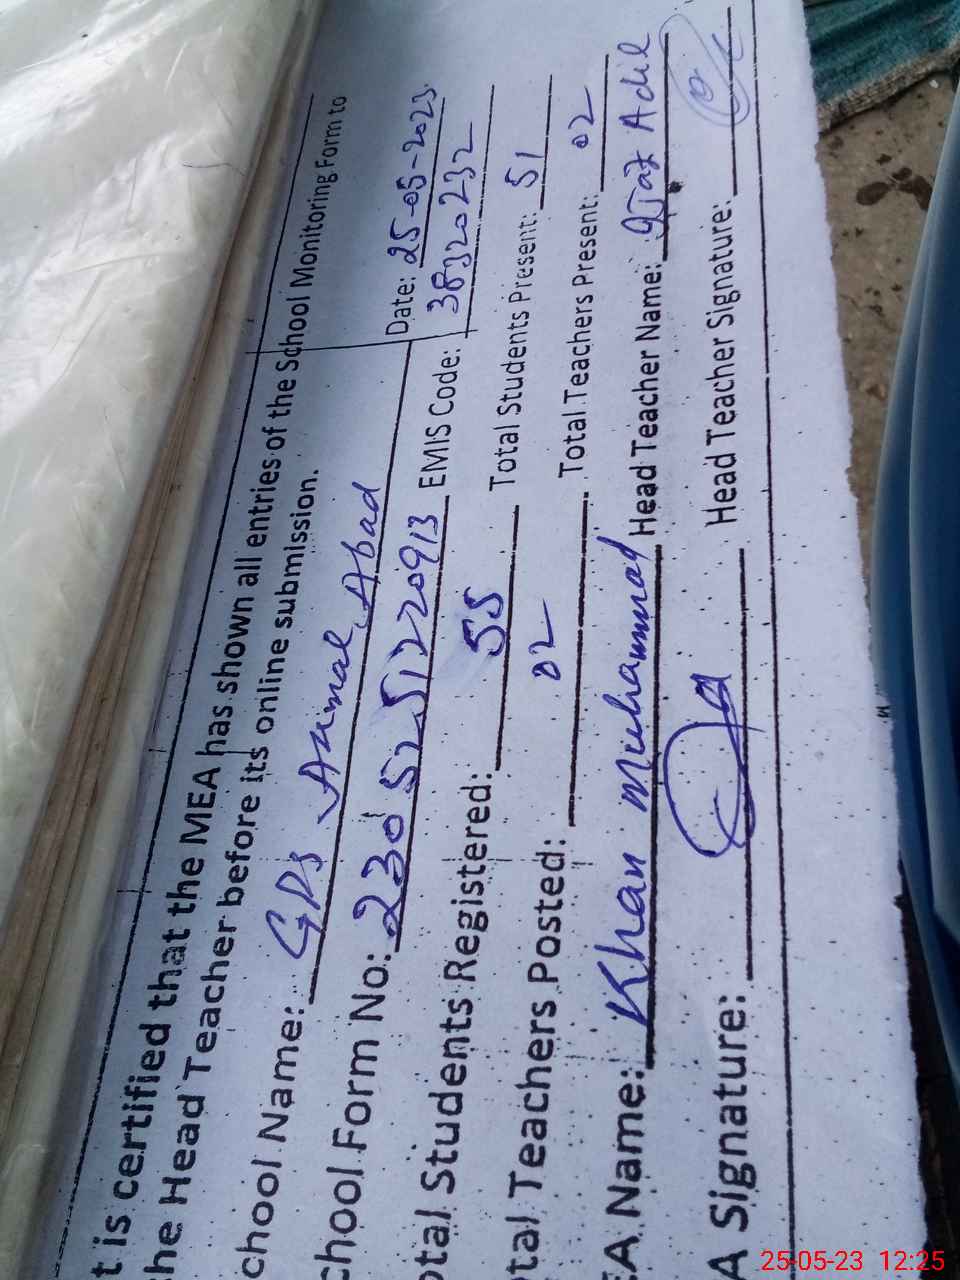 t is certified that the MEA has shown all entries of the School Monitoring Form to
he Head Teacher before its online submission.
chool Name: GPS Aamal Abad Date: 25-05-2023
chool Form No: 2305251220913 EMIS Code: 38320232
otal Students Registered: 55 Total Students Present: 51
otal Teachers Posted: 02 Total Teachers Present: 02
EA Name: Khan Muhammad Head Teacher Name: Ijaz Adil
A Signature: Head Teacher Signature:
25-05-23 12:25